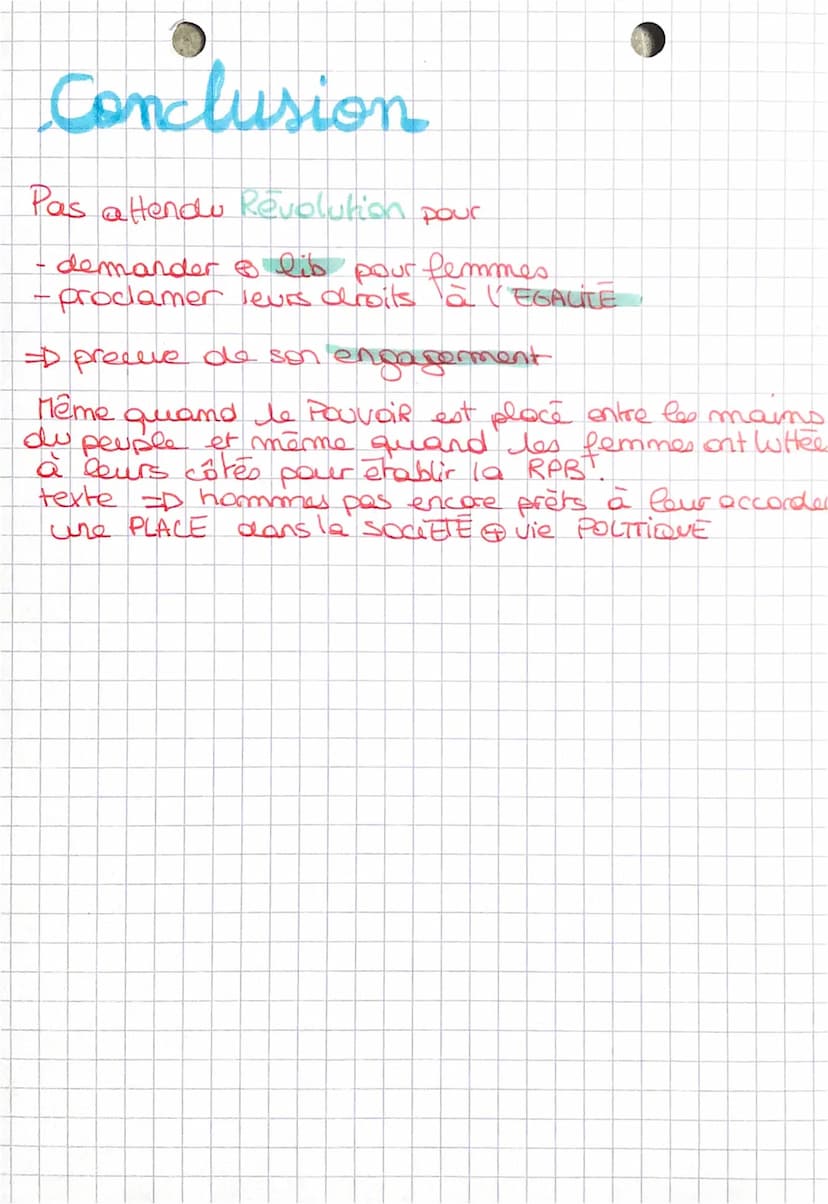 Conclusion
Pas attendu Révolution pour
- demander ⊕ lib pour femmes
- proclamer leurs droits à l'EGALITÉ
⇒ preuve de son engagement
Même quand le POUVOIR est placé entre les mains
du peuple et même quand les femmes ont luttée
à leurs côtés pour établir la RPB†.
texte ⇒ hommes pas encore prêts à leur accorder
une PLACE dans la SOCIÉTÉ ⊕ vie POLITIQUE